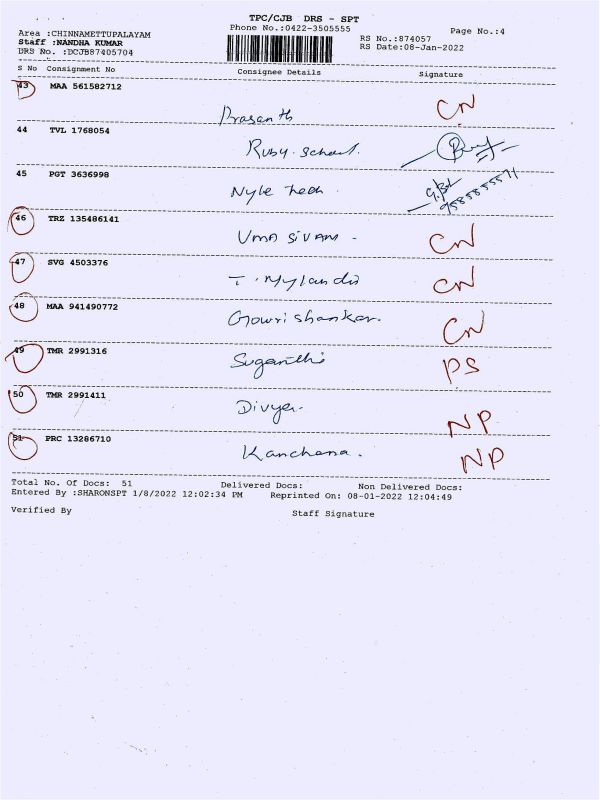 TPC/CJB DRS - SPT
Phone No.:0422-3505555
Page No.:4
Area :CHINNAMETTUPALAYAM
Staff :NANDHA KUMAR
DRS No. :DCJB87405704
RS No.:874057
RS Date:08-Jan-2022
S No Consignment No Consignee Details Signature
43 MAA 561582712
Prasanth CN
44 TVL 1768054
Ruby. School.
45 PGT 3636998
Nyle Tech . 9585855571
46 TRZ 135486141
Uma Sivam - CN
47 SVG 4503376
T. Mylandii CN
48 MAA 941490772
Gowri shankar. CN
49 TMR 2991316
Suganthi PS
50 TMR 2991411
Divya. NP
51 PRC 13286710
Kanchana. NP
Total No. Of Docs: 51 Delivered Docs: Non Delivered Docs:
Entered By :SHARONSPT 1/8/2022 12:02:34 PM Reprinted On: 08-01-2022 12:04:49
Verified By Staff Signature